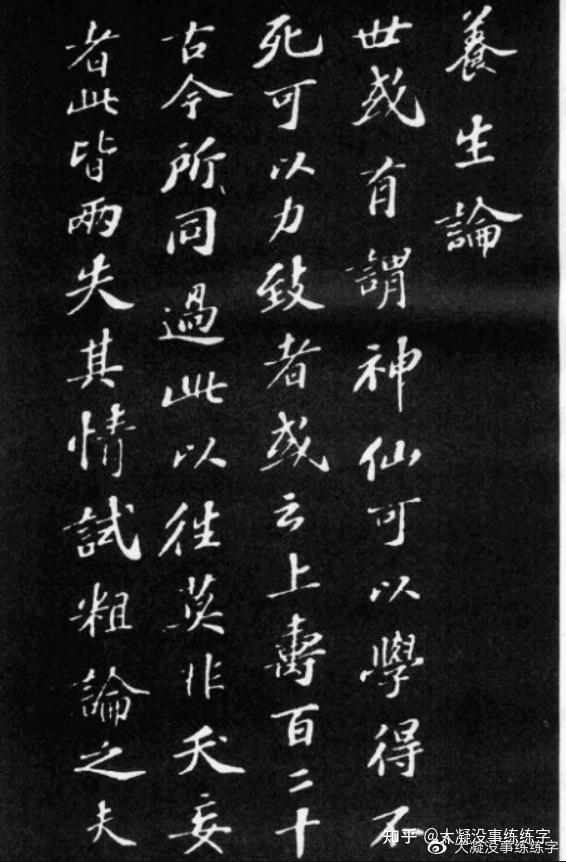 養生論
世或有謂神仙可以學得不
死可以力致者或云上壽百二十
古今所同過此以往莫非夭妄
者此皆兩失其情試粗論之夫
知乎 @大凝没事练练字
大凝没事练练字